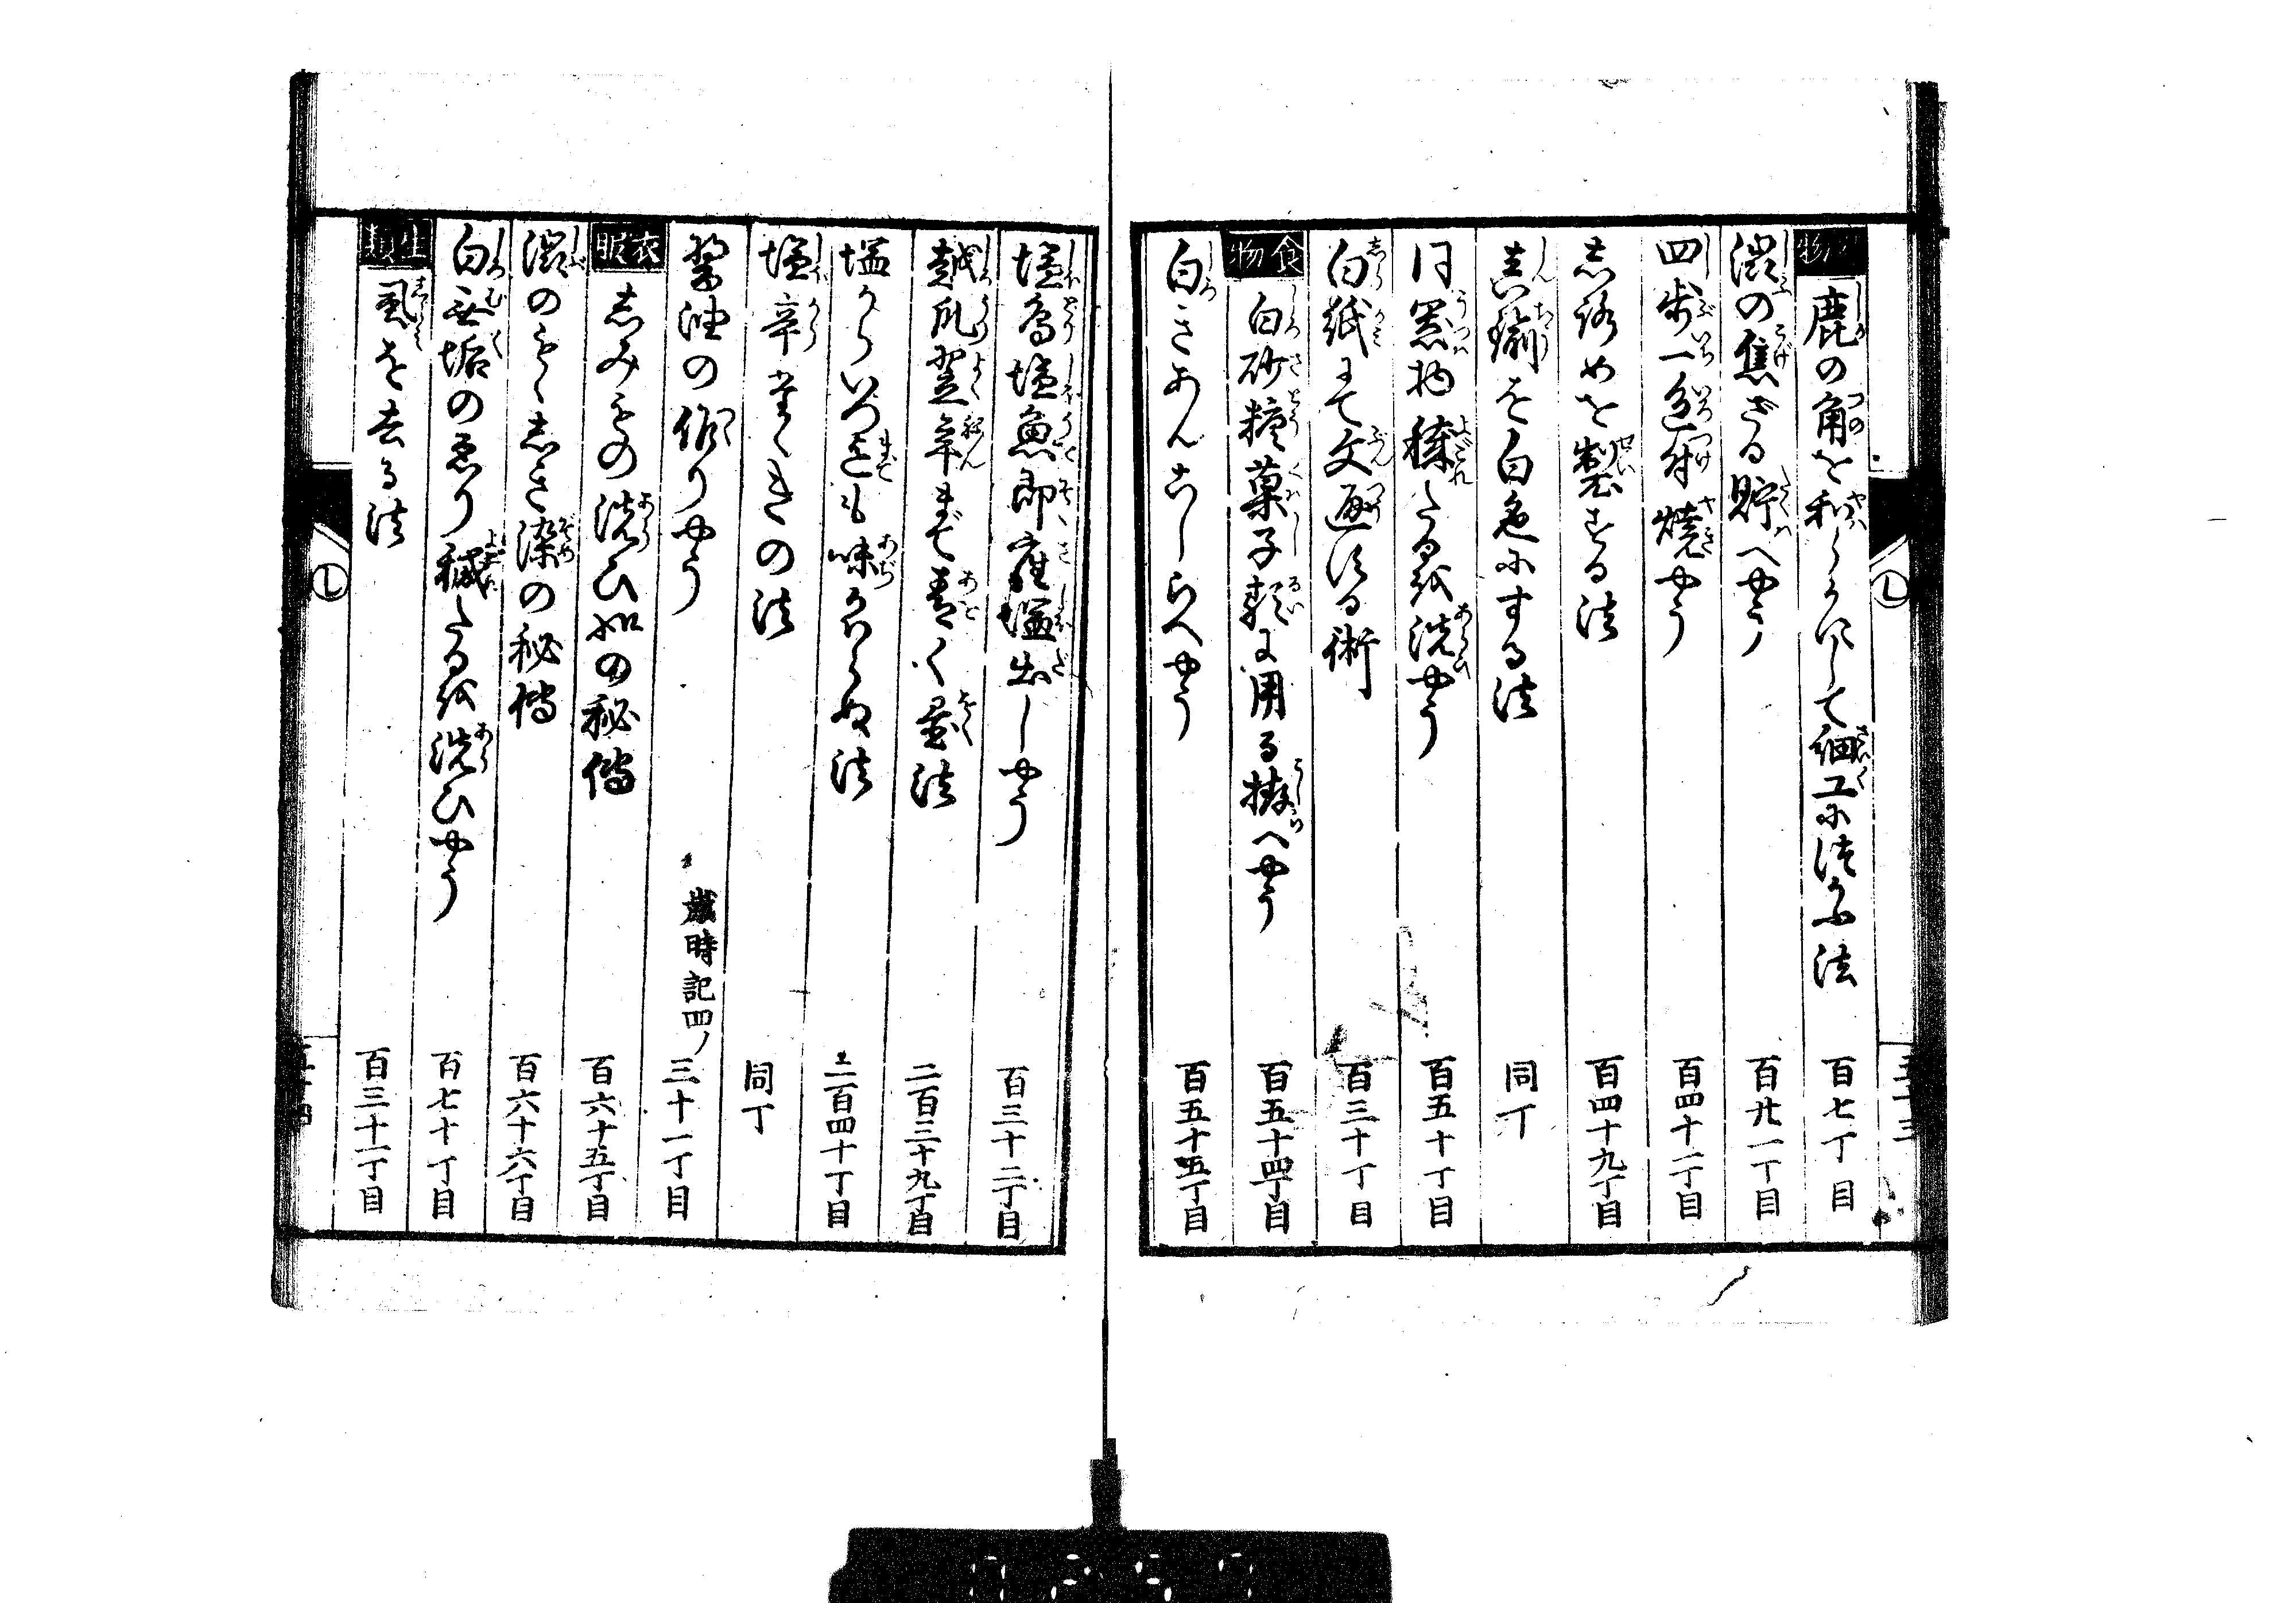 鹿の角を和らかにして細工に法かふ法 百七丁目
渋の焦ざる貯へやう 百廿一丁目
四歩一色付焼やう 百四十一丁目
志ろめを製する法 百四十九丁目
真鍮を白色にする法 同丁
同器物穢たるを洗やう 百五十丁目
白紙にて文通する術 百三十丁目
食物
白砂糖菓子類に用る拵へやう 百五十四丁目
白きあんこしらへやう 百五十五丁目
塩鳥塩魚即座塩出しやう 百三十二丁目
越瓜翌年まで青く置法 二百三十九丁目
塩からいつ迄も味かはらぬ法 二百四十丁目
塩辛 の法 同丁
醤油の作りやう 歳時記四ノ 三十一丁目
衣服
志みもの洗ひ如の秘傳 百六十五丁目
渋の 志き染の秘傳 百六十六丁目
白無垢のゑり穢たるを洗ひやう 百七十丁目
生類
虱を去る法 百三十一丁目